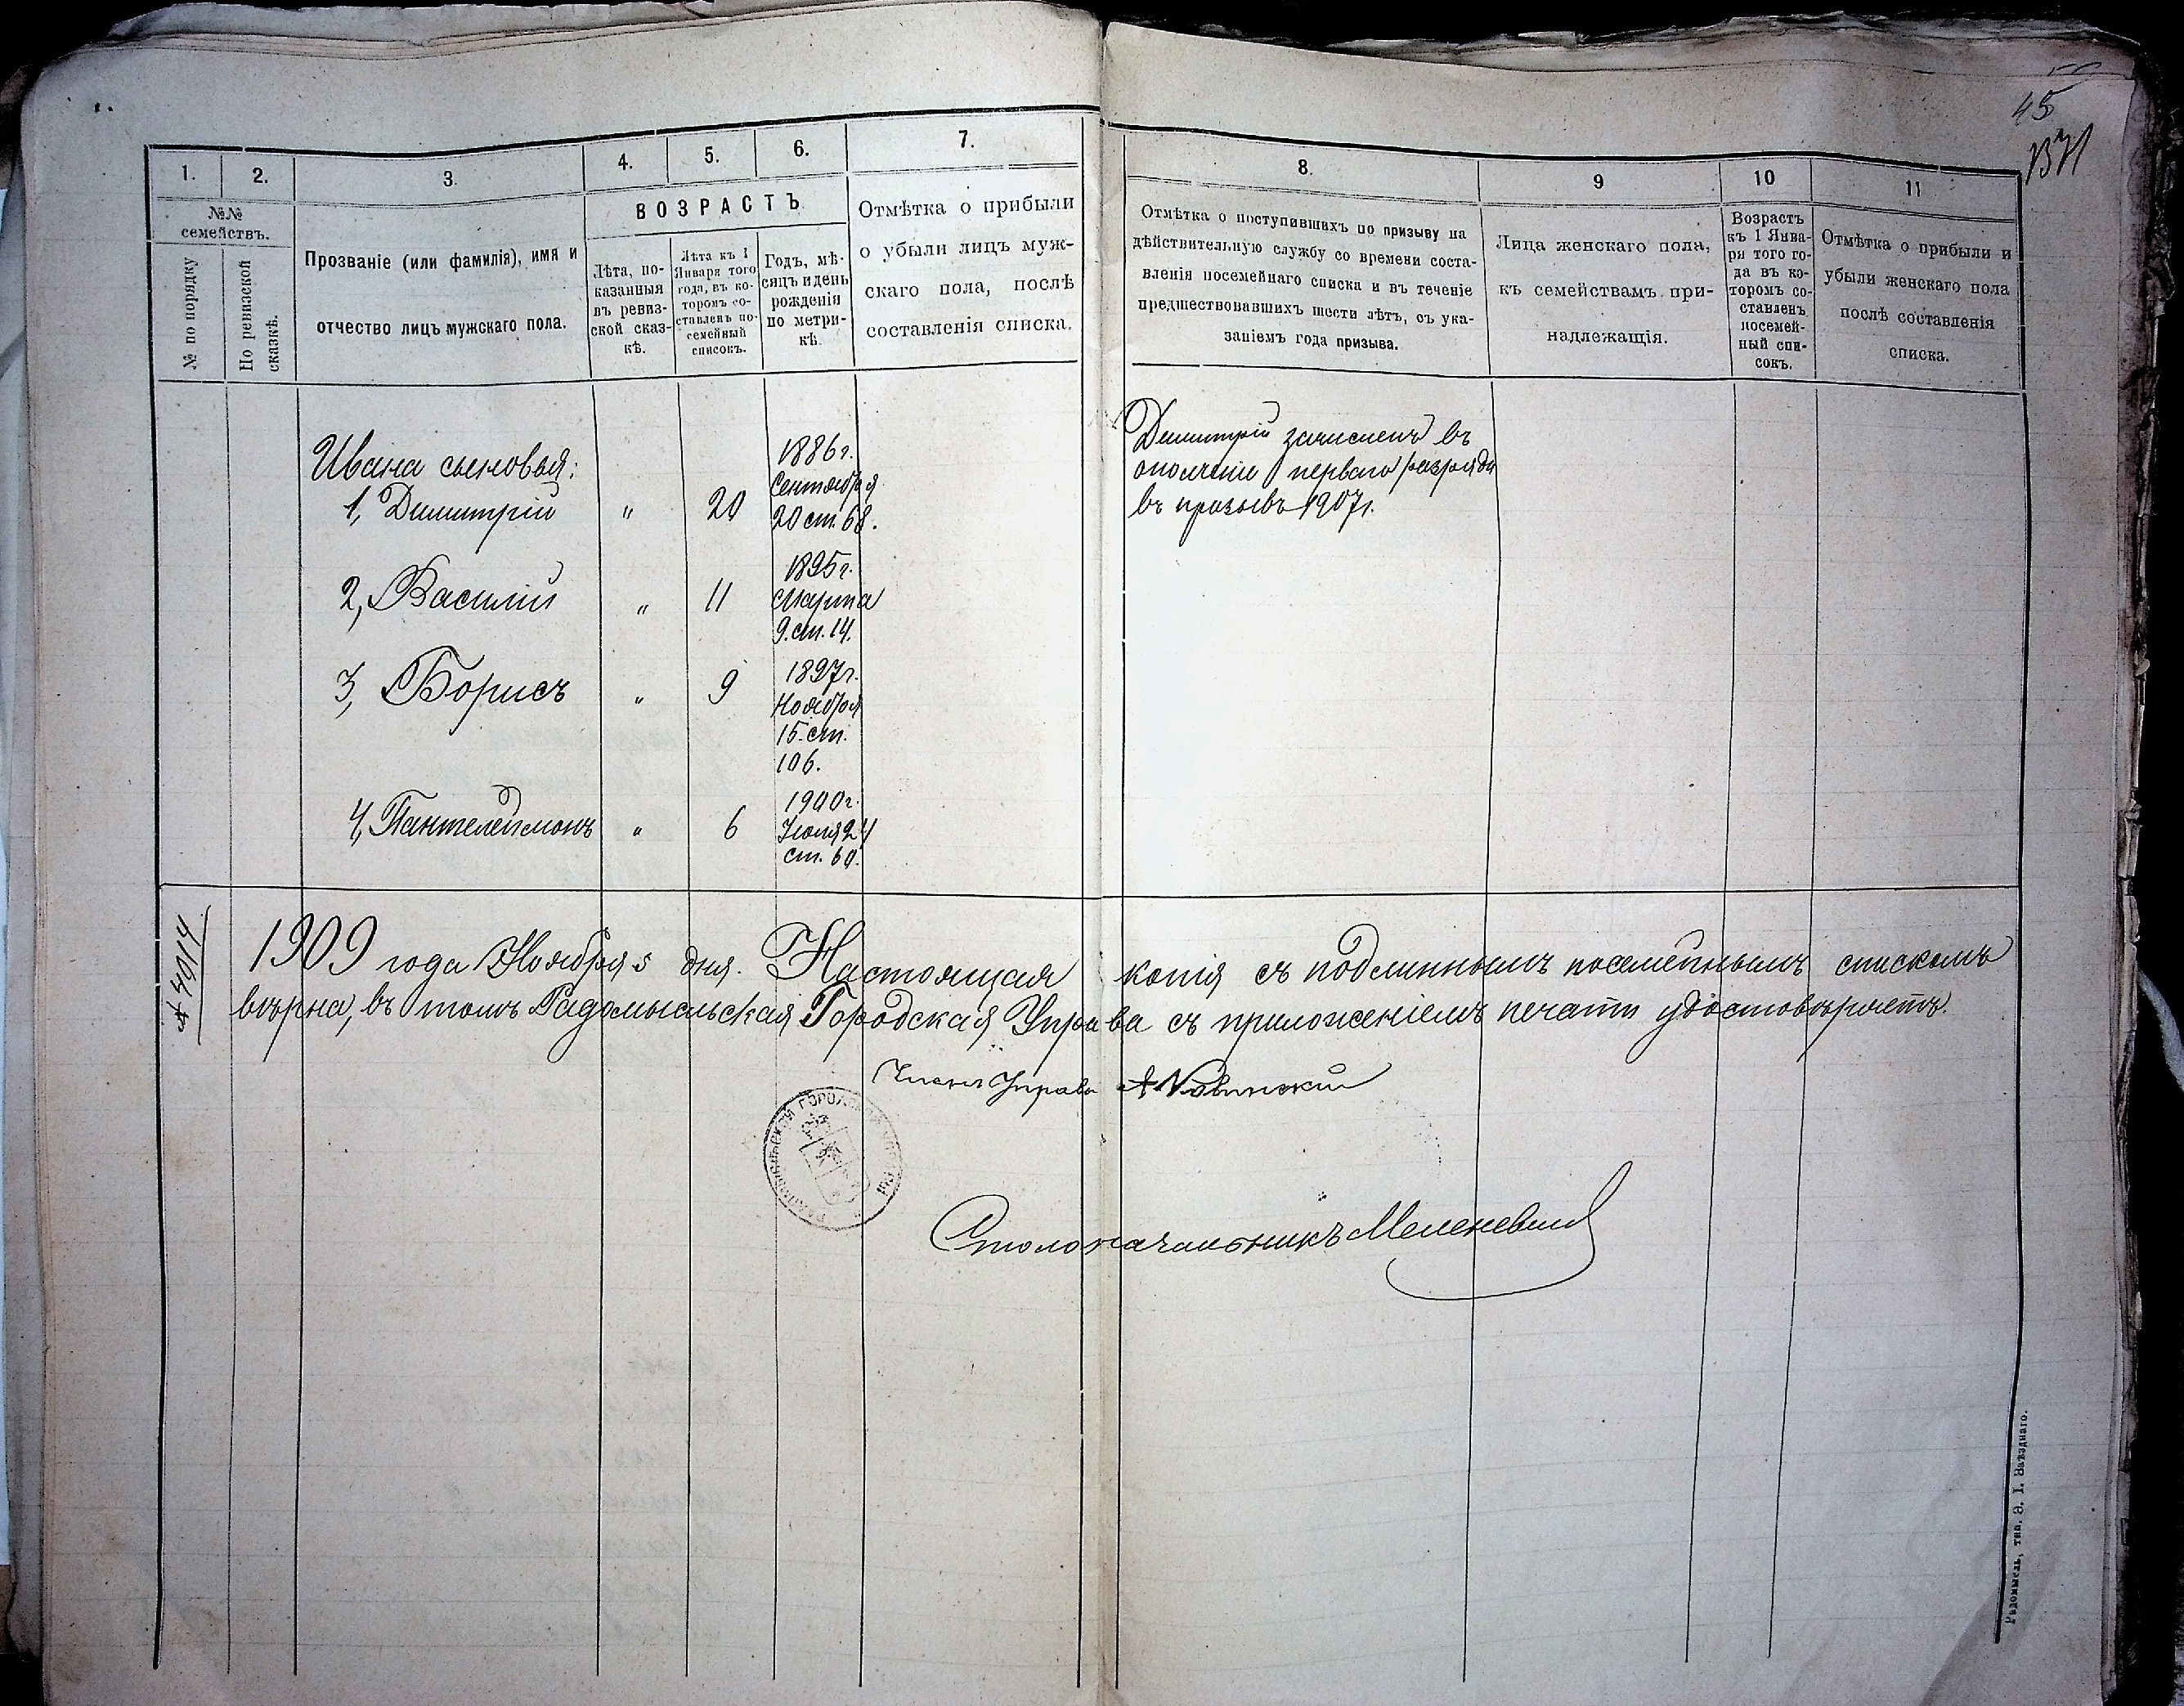 45
1.
2.
3.
4.
5.
6.
7.
8.
9
10
11
№№
семействъ.
№ по порядку
По ревизской
сказкѣ.
Прозваніе (или фамилія), имя и
отчество лицъ мужскаго пола.
ВОЗРАСТЪ
Лѣта, по-
казанныя
въ ревиз-
ской сказ-
кѣ.
Лѣта къ 1
Января того
года, въ ко-
торомъ со-
ставленъ по-
семейный
списокъ.
Годъ, мѣ-
сяцъ и день
рожденія
по метри-
кѣ
Отмѣтка о прибыли
о убыли лицъ муж-
скаго пола, послѣ
составленія списка.
Отмѣтка о поступившихъ по призыву на
дѣйствительную службу со времени соста-
вленія посемейнаго списка и въ теченіе
предшествовавшихъ шести лѣтъ, съ ука-
заніемъ года призыва.
Лица женскаго пола,
къ семействамъ при-
надлежащія.
Возрастъ
къ 1 Янва-
ря того го-
да въ ко-
торомъ со-
ставленъ
посемей-
ный спи-
сокъ.
Отмѣтка о прибыли и
убыли женскаго пола
послѣ составленія
списка.
Ивана сыновья:
1, Димитрій " 20
1886 г.
Сентября
20 ст. 68.
Димитрій зачисленъ въ
ополченіе перваго разряда
въ призывъ 1907 г.
2, Василій " 11
1895 г.
Марта
9. ст. 14.
3, Борисъ " 9
1897 г.
Ноября
15. ст.
106.
4, Пантелеймонъ " 6
1900 г.
Іюля 24
ст. 60.
№ 4914
1909 года Ноября 5 дня. Настоящая копія съ подлиннымъ посемейнымъ спискомъ
вѣрна, въ томъ Радомысльская Городская Управа съ приложеніемъ печати удостовѣряетъ.
Членъ Управы А Новинскій
Столоначальникъ Меленевскій
Радомысль, тип. Э. І. Заѣзднаго.